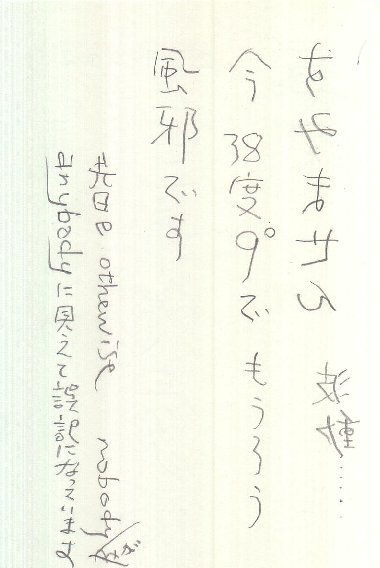 すみません ……
今38度9°で もうろう
風邪です
otherwise nobodyが
anybodyに見えて誤記になっています